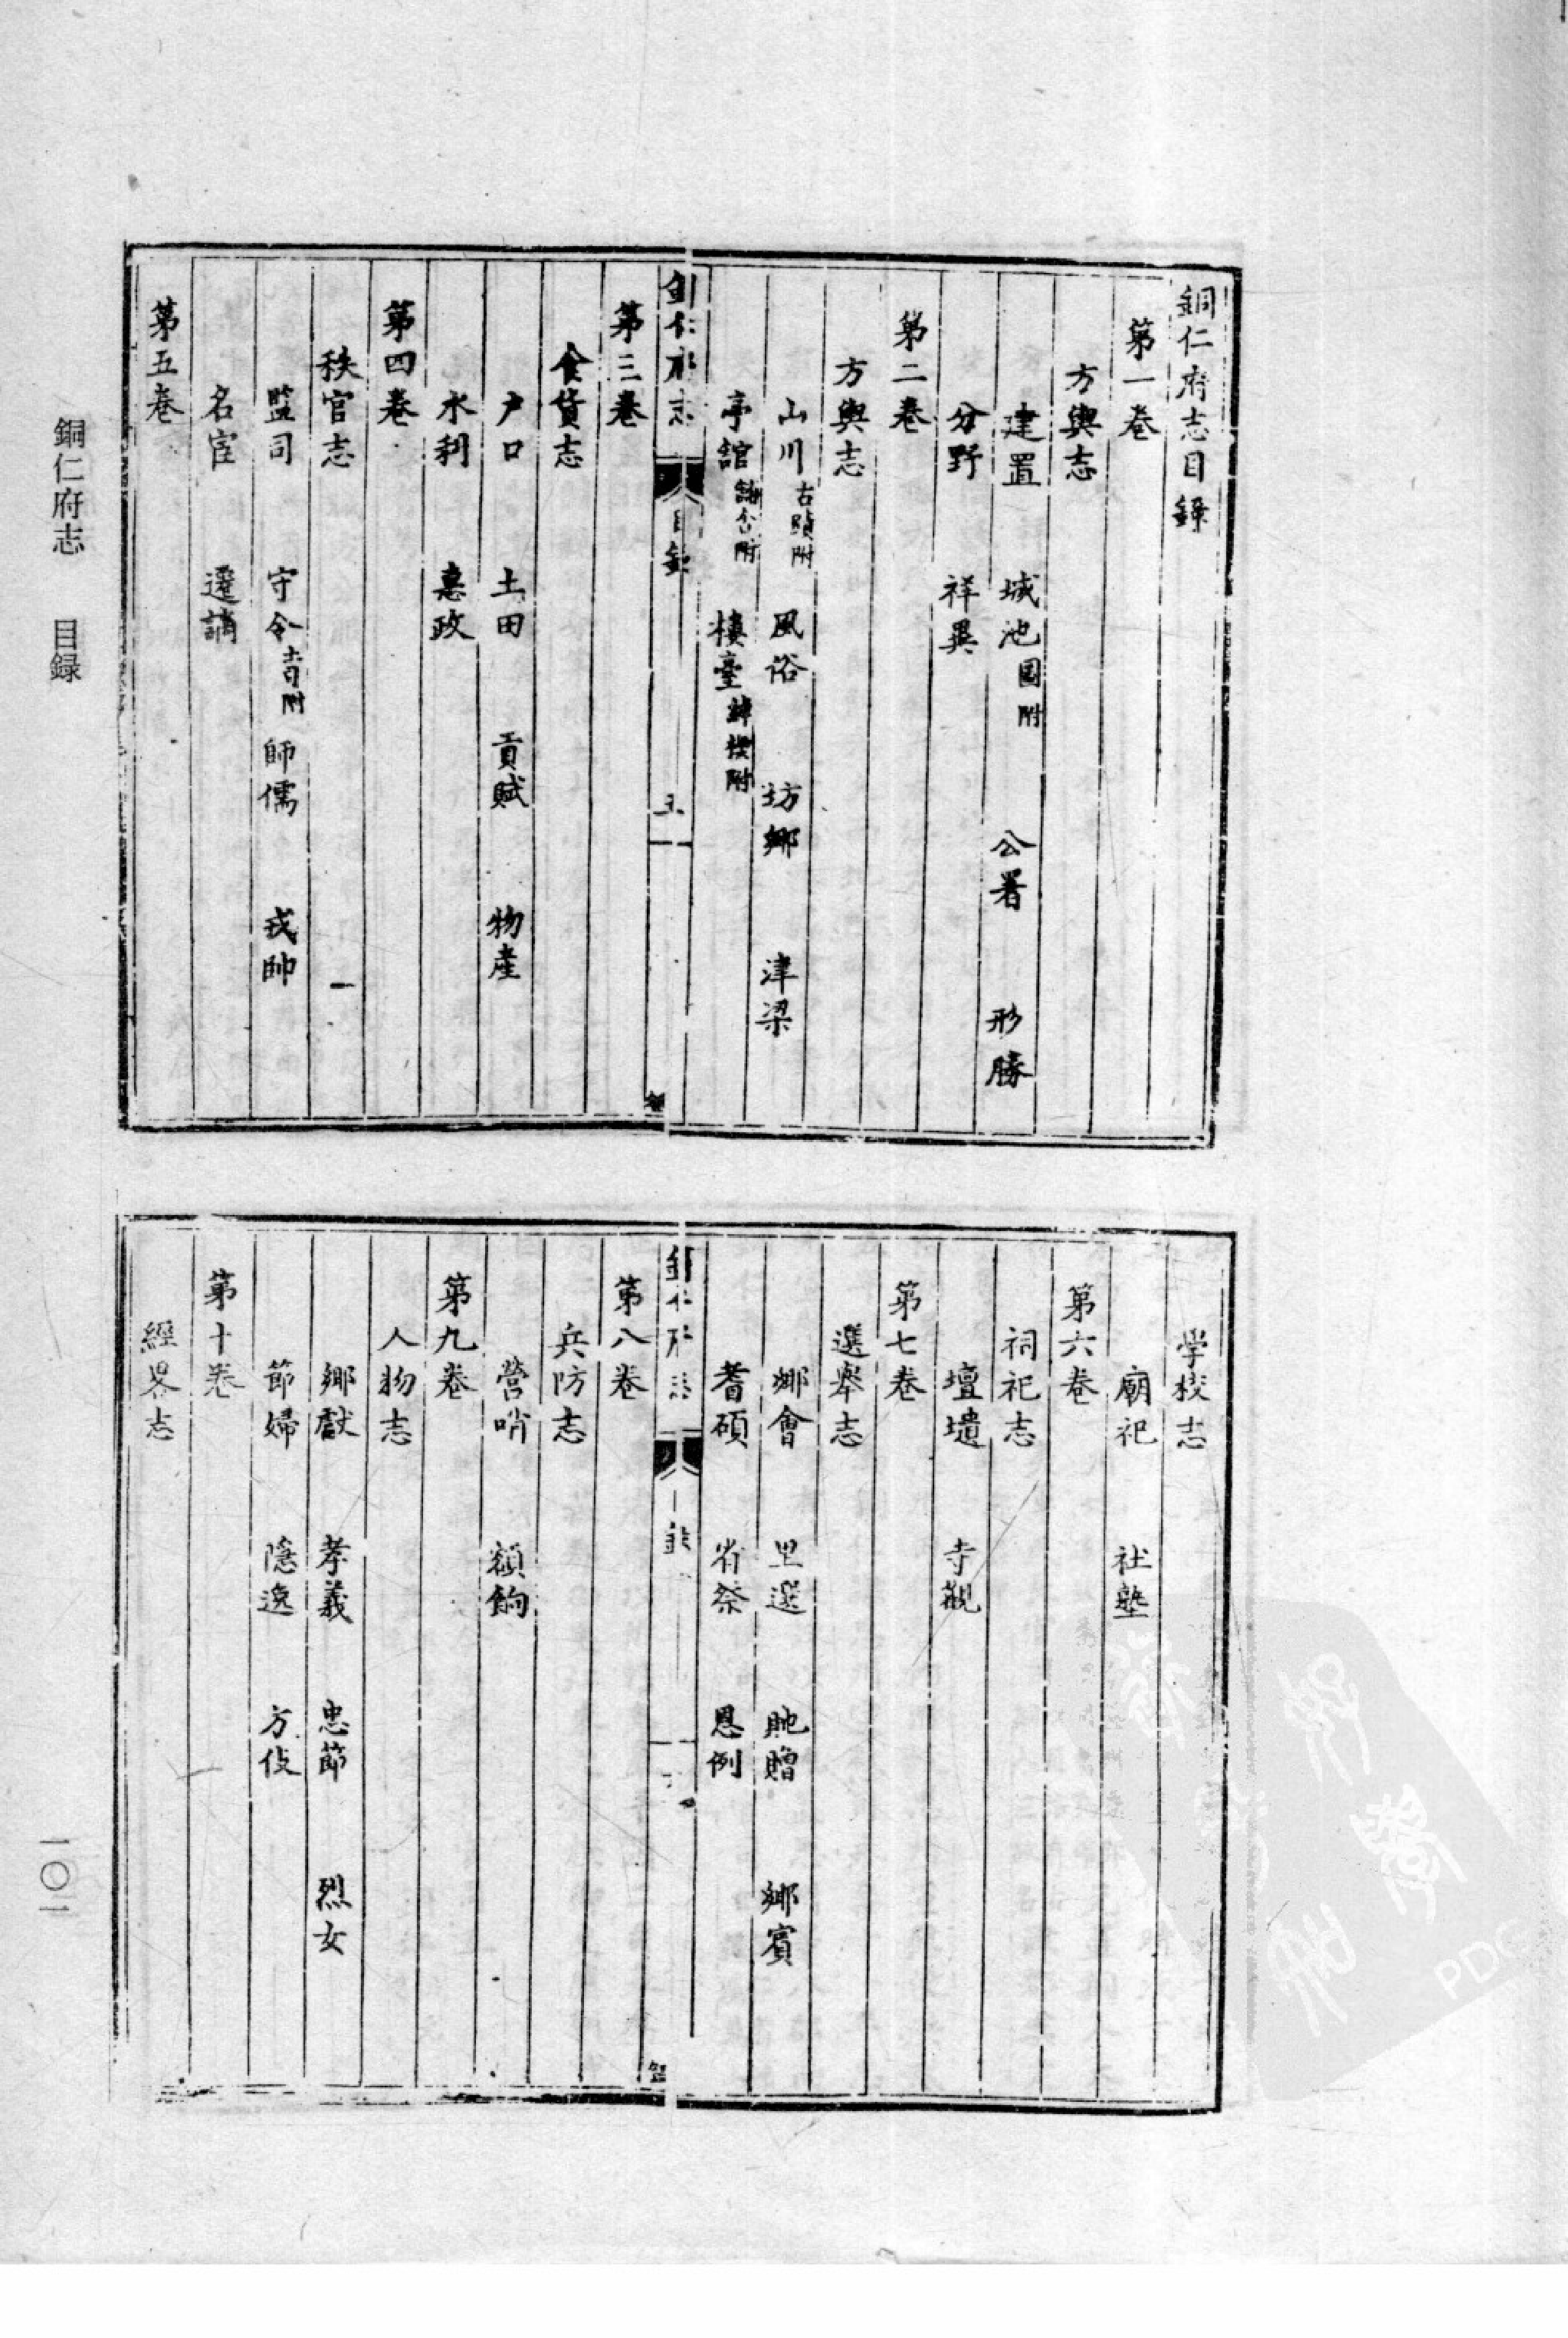 銅仁府志目錄
第一卷
方輿志
建置 城池圖附 公署 形勝
分野 祥異
第二卷
方輿志
山川古蹟附 風俗 坊鄉 津梁
亭館 樓臺
銅仁府志 目錄 五
第三卷
食貨志
户口 土田 貢賦 物產
水利 惠政
第四卷
秩官志
監司 守令 師儒 戎帥
名宦 遷謫
第五卷
学校志
廟祀 社塾
第六卷
祠祀志
壇壝 寺觀
第七卷
選舉志
鄉會 里選 貤贈 鄉賓
耆碩 省祭 恩例
銅仁府志
第八卷
兵防志
營哨 額餉
第九卷
人物志
鄉獻 孝義 忠節 烈女
節婦 隱逸 方伎
第十卷
經畧志
銅仁府志 目録
一〇一